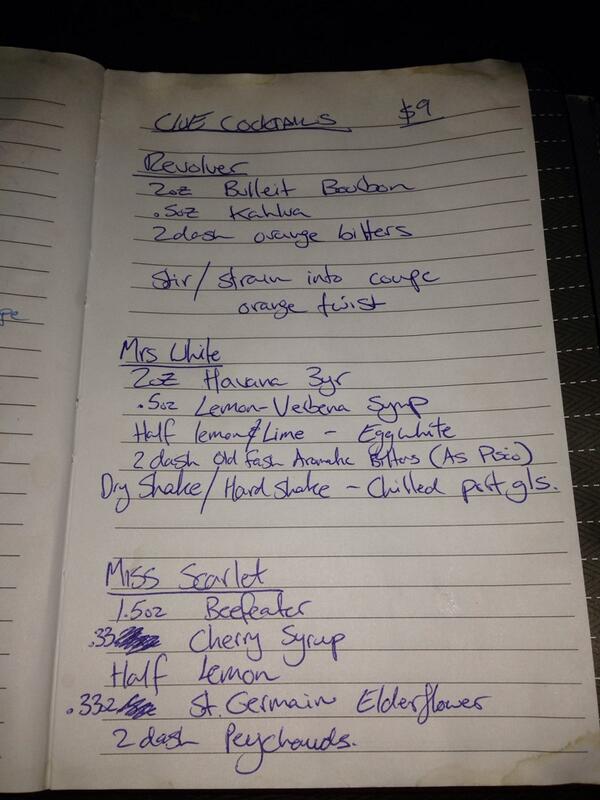 CLUE COCKTAILS $9
Revolver
2oz Bulleit Bourbon
.5oz Kahlua
2 dash orange bitters
Stir/strain into coupe
orange twist
Mrs White
2oz Havana 3yr
.5oz Lemon-Verbena Syrup
Half lemon & Lime - Eggwhite
2 dash Old Fash Aromatic Bitters (As Pisco)
Dry Shake/Hard Shake - Chilled port gls.
Miss Scarlet
1.5oz Beefeater
.33 Cherry Syrup
Half Lemon
.332 St. Germain Elderflower
2 dash Peychauds.